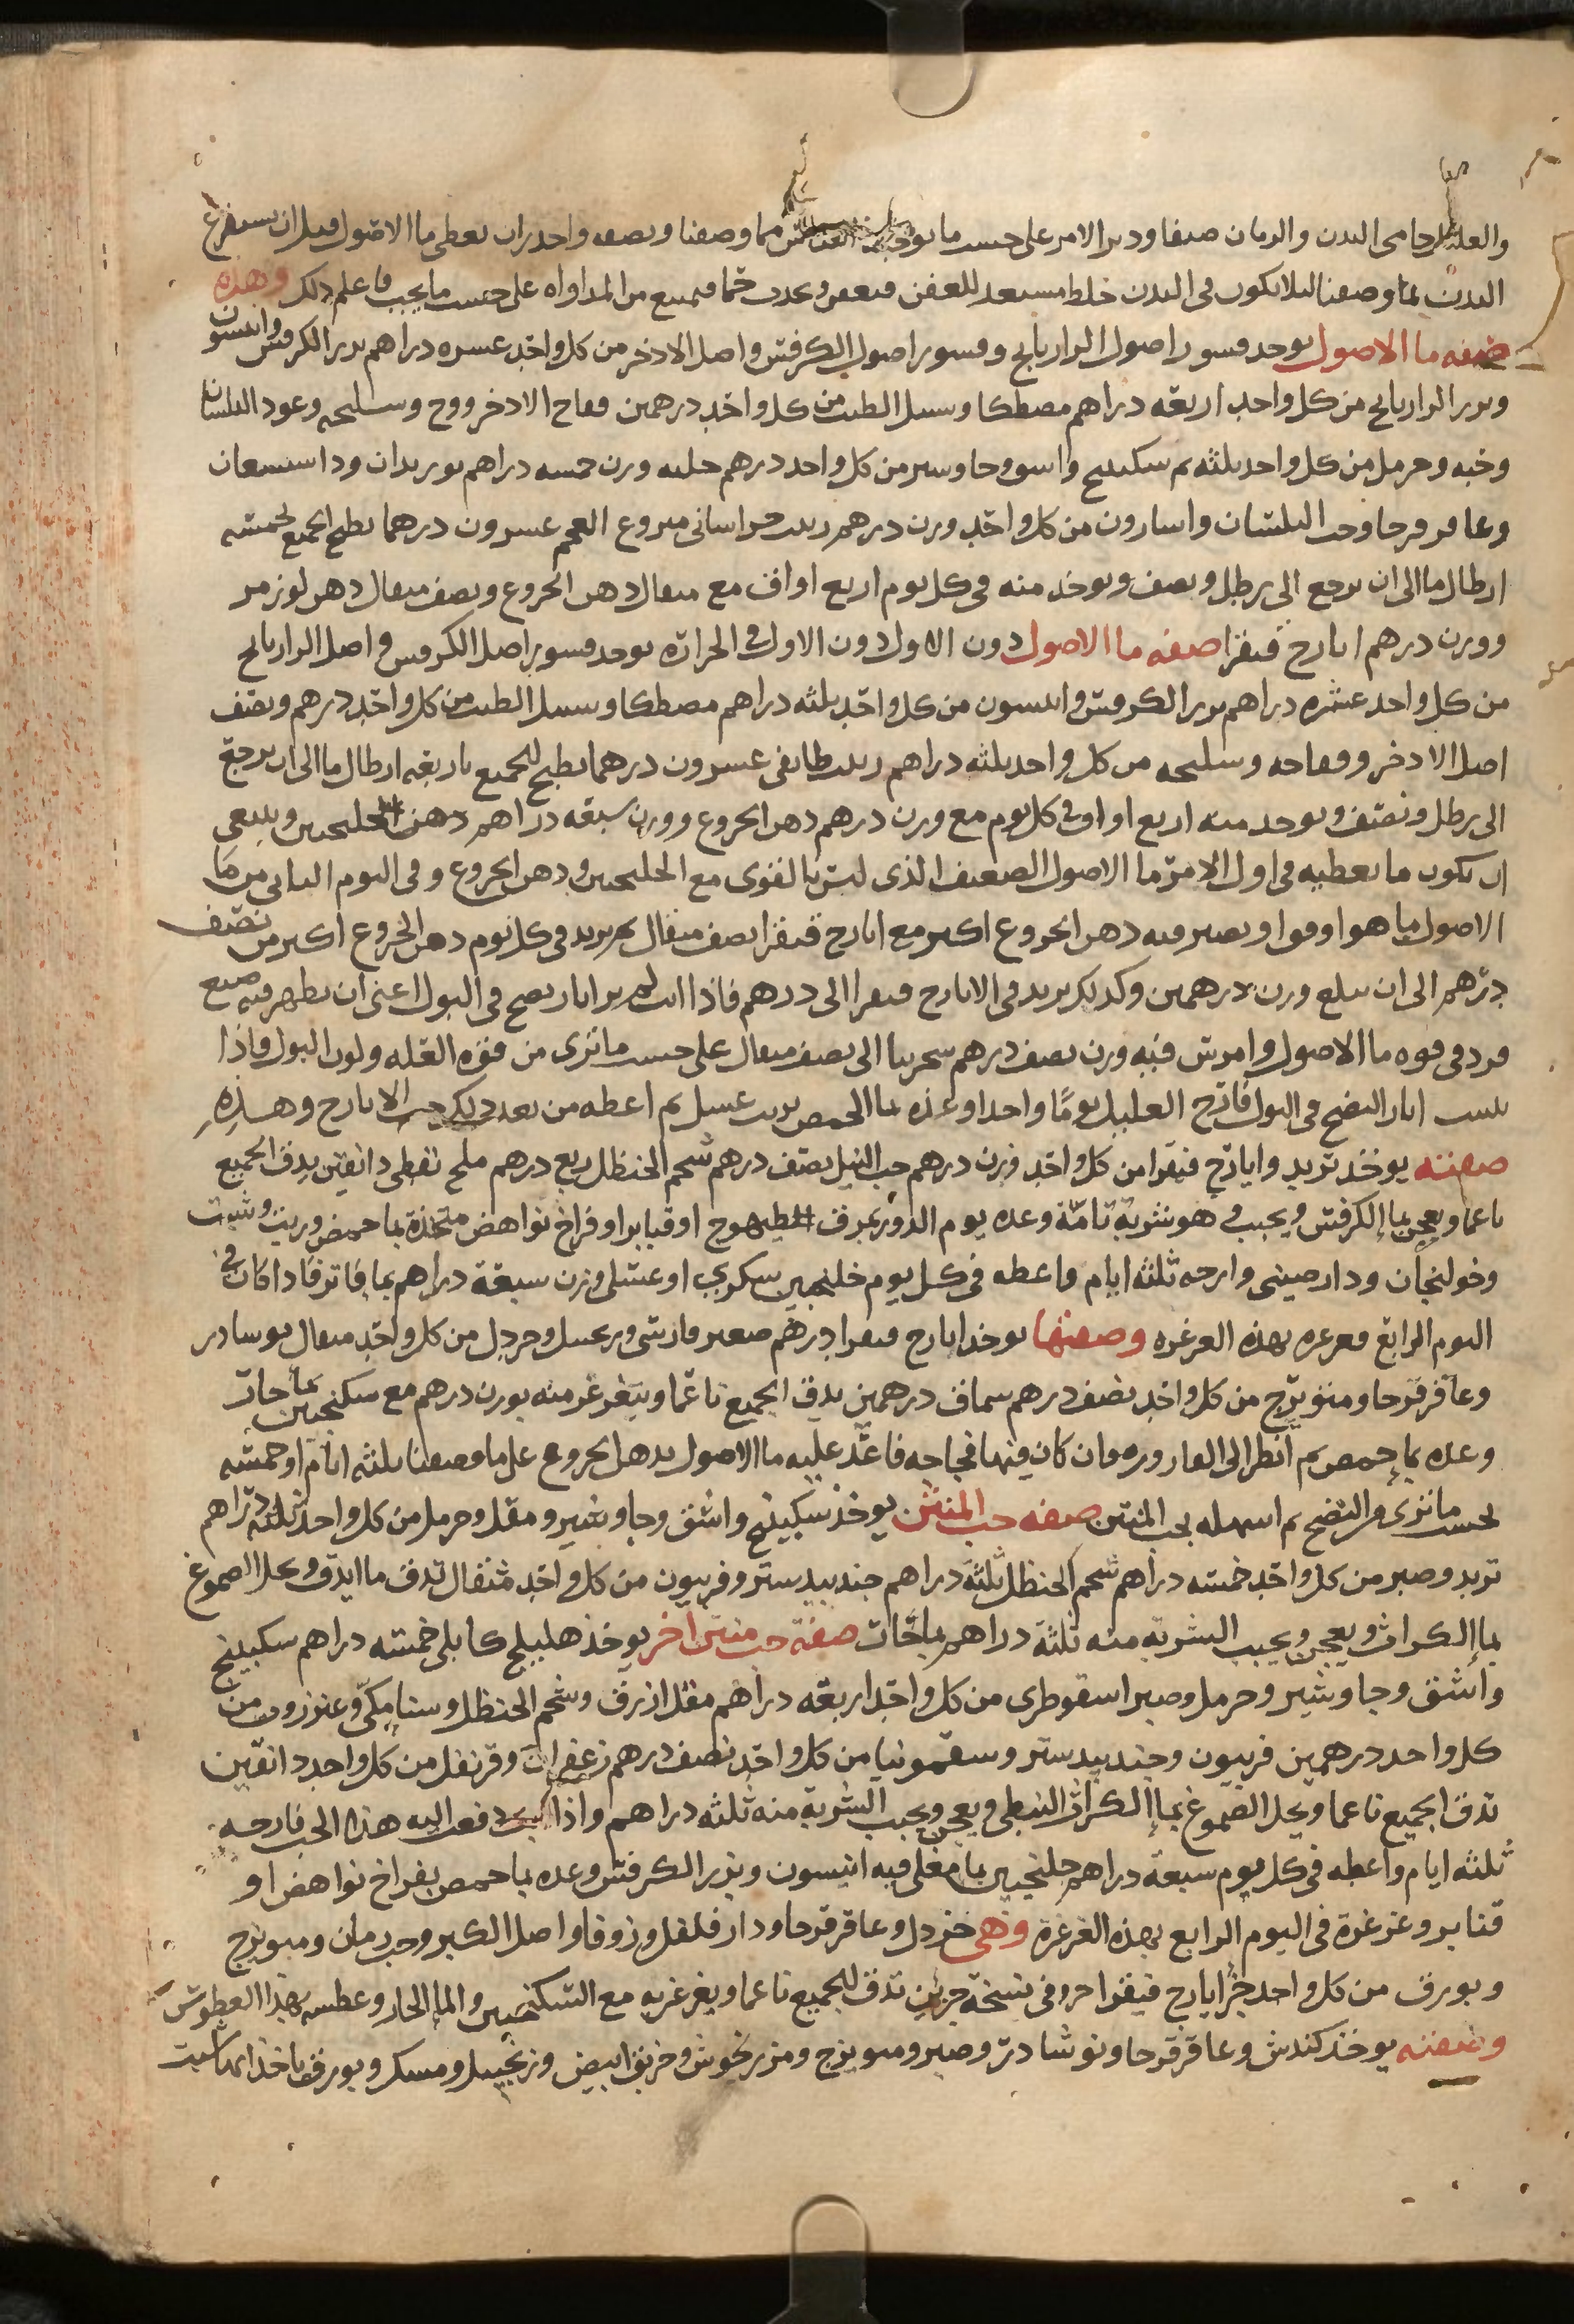 والعليل حامى البدن والزمان صيفا ودبر الامر على حسب ما يوجبه القياس مما وصفنا ونصفه واحذر ان تعطى ما الاصول قبل ان تستفرغ
البدن بما وصفنا لئلا يكون فى البدن خلط مستعد للعفن فيعفن ويحدث حما فيمنع من المداواه على حسب ما يجب فاعلم ذلك وهذه
صفه ما الاصول يوخد قشور اصول الرازيانج وقشور اصول الكرفس واصل الادخر من كل واحد عشره دراهم بزر الكرفس وانيسون
وبزر الرازيانج من كل واحد اربعه دراهم مصطكا وسنبل الطيب من كل واحد درهمين فقاح الادخر ووج وسليخه وعود البلسان
وحبه وحرمل من كل واحد ثلثه سكبينج واشق وجاوشير من كل واحد درهم حلبه وزن خمسه دراهم بوزيدان وداستسعان
وعاقر قرحا وحب البلسان واسارون من كل واحد وزن درهم زبيب خراسانى منزوع العجم عشرون درهما يطبخ الجميع بخمسه
ارطال ما الى ان يرجع الى رطل ونصف ويوخد منه فى كل يوم اربع اواق مع مثقال دهن الخروع ونصف مثقال دهن لوز مر
ووزن درهم ايارج فيقرا صفه ما الاصول دون الاول دون الاول فى الحراره يوخد قشور اصل الكرفس واصل الرازيانج
من كل واحد عشره دراهم بزر الكرفس وانيسون من كل واحد ثلثه دراهم مصطكا وسنبل الطيب من كل واحد درهم ونصف
اصل الادخر وفقاحه وسليخه من كل واحد ثلثه دراهم زبيب طايفى عشرون درهما يطبخ الجميع باربعه ارطال ما الى ان يرجع
الى رطل ونصف ويوخد منه اربع اواق فى كل يوم مع وزن درهم دهن الخروع ووزن سبعه دراهم دهن الجلنجبين وينبغى
ان يكون ما تعطيه فى اول الامر ما الاصول الضعيف الذى ليس بالقوى مع الجلنجبين ودهن الخروع وفى اليوم الثانى من ما
الاصول ما هو اقوا وتصير فيه دهن الخروع اكثر مع ايارج فيقرا نصف مثقال ثم يزيد فى كل يوم دهن الخروع اكثر من نصف
درهم الى ان يبلغ وزن درهمين وكذلك يزيد فى الايارج فيقرا الى درهم فاذا انت لم تر اثار نضج فى البول اعنى ان يظهر فيه صبغ
فزد فى قوه ما الاصول وامرس فيه وزن نصف درهم سجزنيا الى نصف مثقال على حسب ما ترى من قوه العله ولون البول فاذا
تبينت اثار النضج فى البول فارح العليل يوما واحدا وغذه بما الحمص بزيت عسل ثم اعطه من بعد ذلك حب الايارج وهذه
صفته يوخذ تربد وايارج فيقرا من كل واحد وزن درهم حب النيل نصف درهم شحم الحنظل ربع درهم ملح نفطى دانقين يدق الجميع
ناعما ويعجن بما الكرفس ويحبب وهو شربة تامة وغده يوم الدور بمرق الطيهوج او قنابر او فراخ نواهض متخذة بما حمص وزيت وشبت
وخولنجان ودارصينى وارحه ثلثه ايام واعطه فى كل يوم جلنجبين سكرى او عسلى وزن سبعة دراهم بما فاتر فاذا كان فى
اليوم الرابع فغرغره بهذه الغرغره وصفتها يوخذ ايارج فيقرا درهم صعتر فارسى وزنجبيل وخردل من كل واحد مثقال نوشادر
وعاقرقرحا وميويزج من كل واحد نصف درهم سماق درهمين يدق الجميع ناعما ويتغرغر منه بوزن درهم مع سكنجبين بما حار
وغده بما حمص ثم انظر الى القاروره فان كان فيها فجاجه فاعد عليه ما الاصول بدهن الخروع على ما وصفنا ثلثه ايام او خمسه
بحسب ما ترى من النضج ثم اسهله بحب المنتن صفه حب المنتن يوخذ سكبينج واشق وجاوشير ومقل وحرمل من كل واحد ثلثه دراهم
تربد وصبر من كل واحد خمسه دراهم شحم الحنظل ثلثه دراهم جندبيدستر وفربيون من كل واحد مثقال تدق ما ايدق وتحل الصموغ
بما الكراث ويعجن ويحبب الشربة منه ثلثة دراهم بما حار صفة حب منتن اخر يوخذ هليلج كابلى خمسه دراهم سكبينج
واشق وجاوشير وحرمل وصبر اسقوطرى من كل واحد اربعه دراهم مقل ازرق وشحم الحنظل وسنا مكى وعنزروت من
كل واحد درهمين فربيون وجندبيدستر وسقمونيا من كل واحد نصف درهم زعفران وقرنفل من كل واحد دانقين
تدق الجميع ناعما ويحل الصموغ بما الكراث النبطى ويعجن ويحبب الشربة منه ثلثه دراهم واذا انت دفعت اليه هذا الحب فارحه
ثلثه ايام واعطه فى كل يوم سبعة دراهم جلنجبين بما مغلى فيه انيسون وبزر الكرفس وغده بما حمص بفراخ نواهض او
قنابر وغرغره فى اليوم الرابع بهذه الغرغرة وهى خردل وعاقرقرحا ودارفلفل وزوفا واصل الكبر وحب رمان وميويزج
وبورق من كل واحد جزء ايارج فيقرا جزو فى نسخة جزين تدق الجميع ناعما ويغرغر به مع السكنجبين والما الحار وعطسه بهذا العطوس
وصفته يوخذ كندش وعاقرقرحا ونوشادر وصبر وميويزج ومرزنجوش وخربق ابيض وزنجبيل ومسك وبورق ياخذ ايها شيت